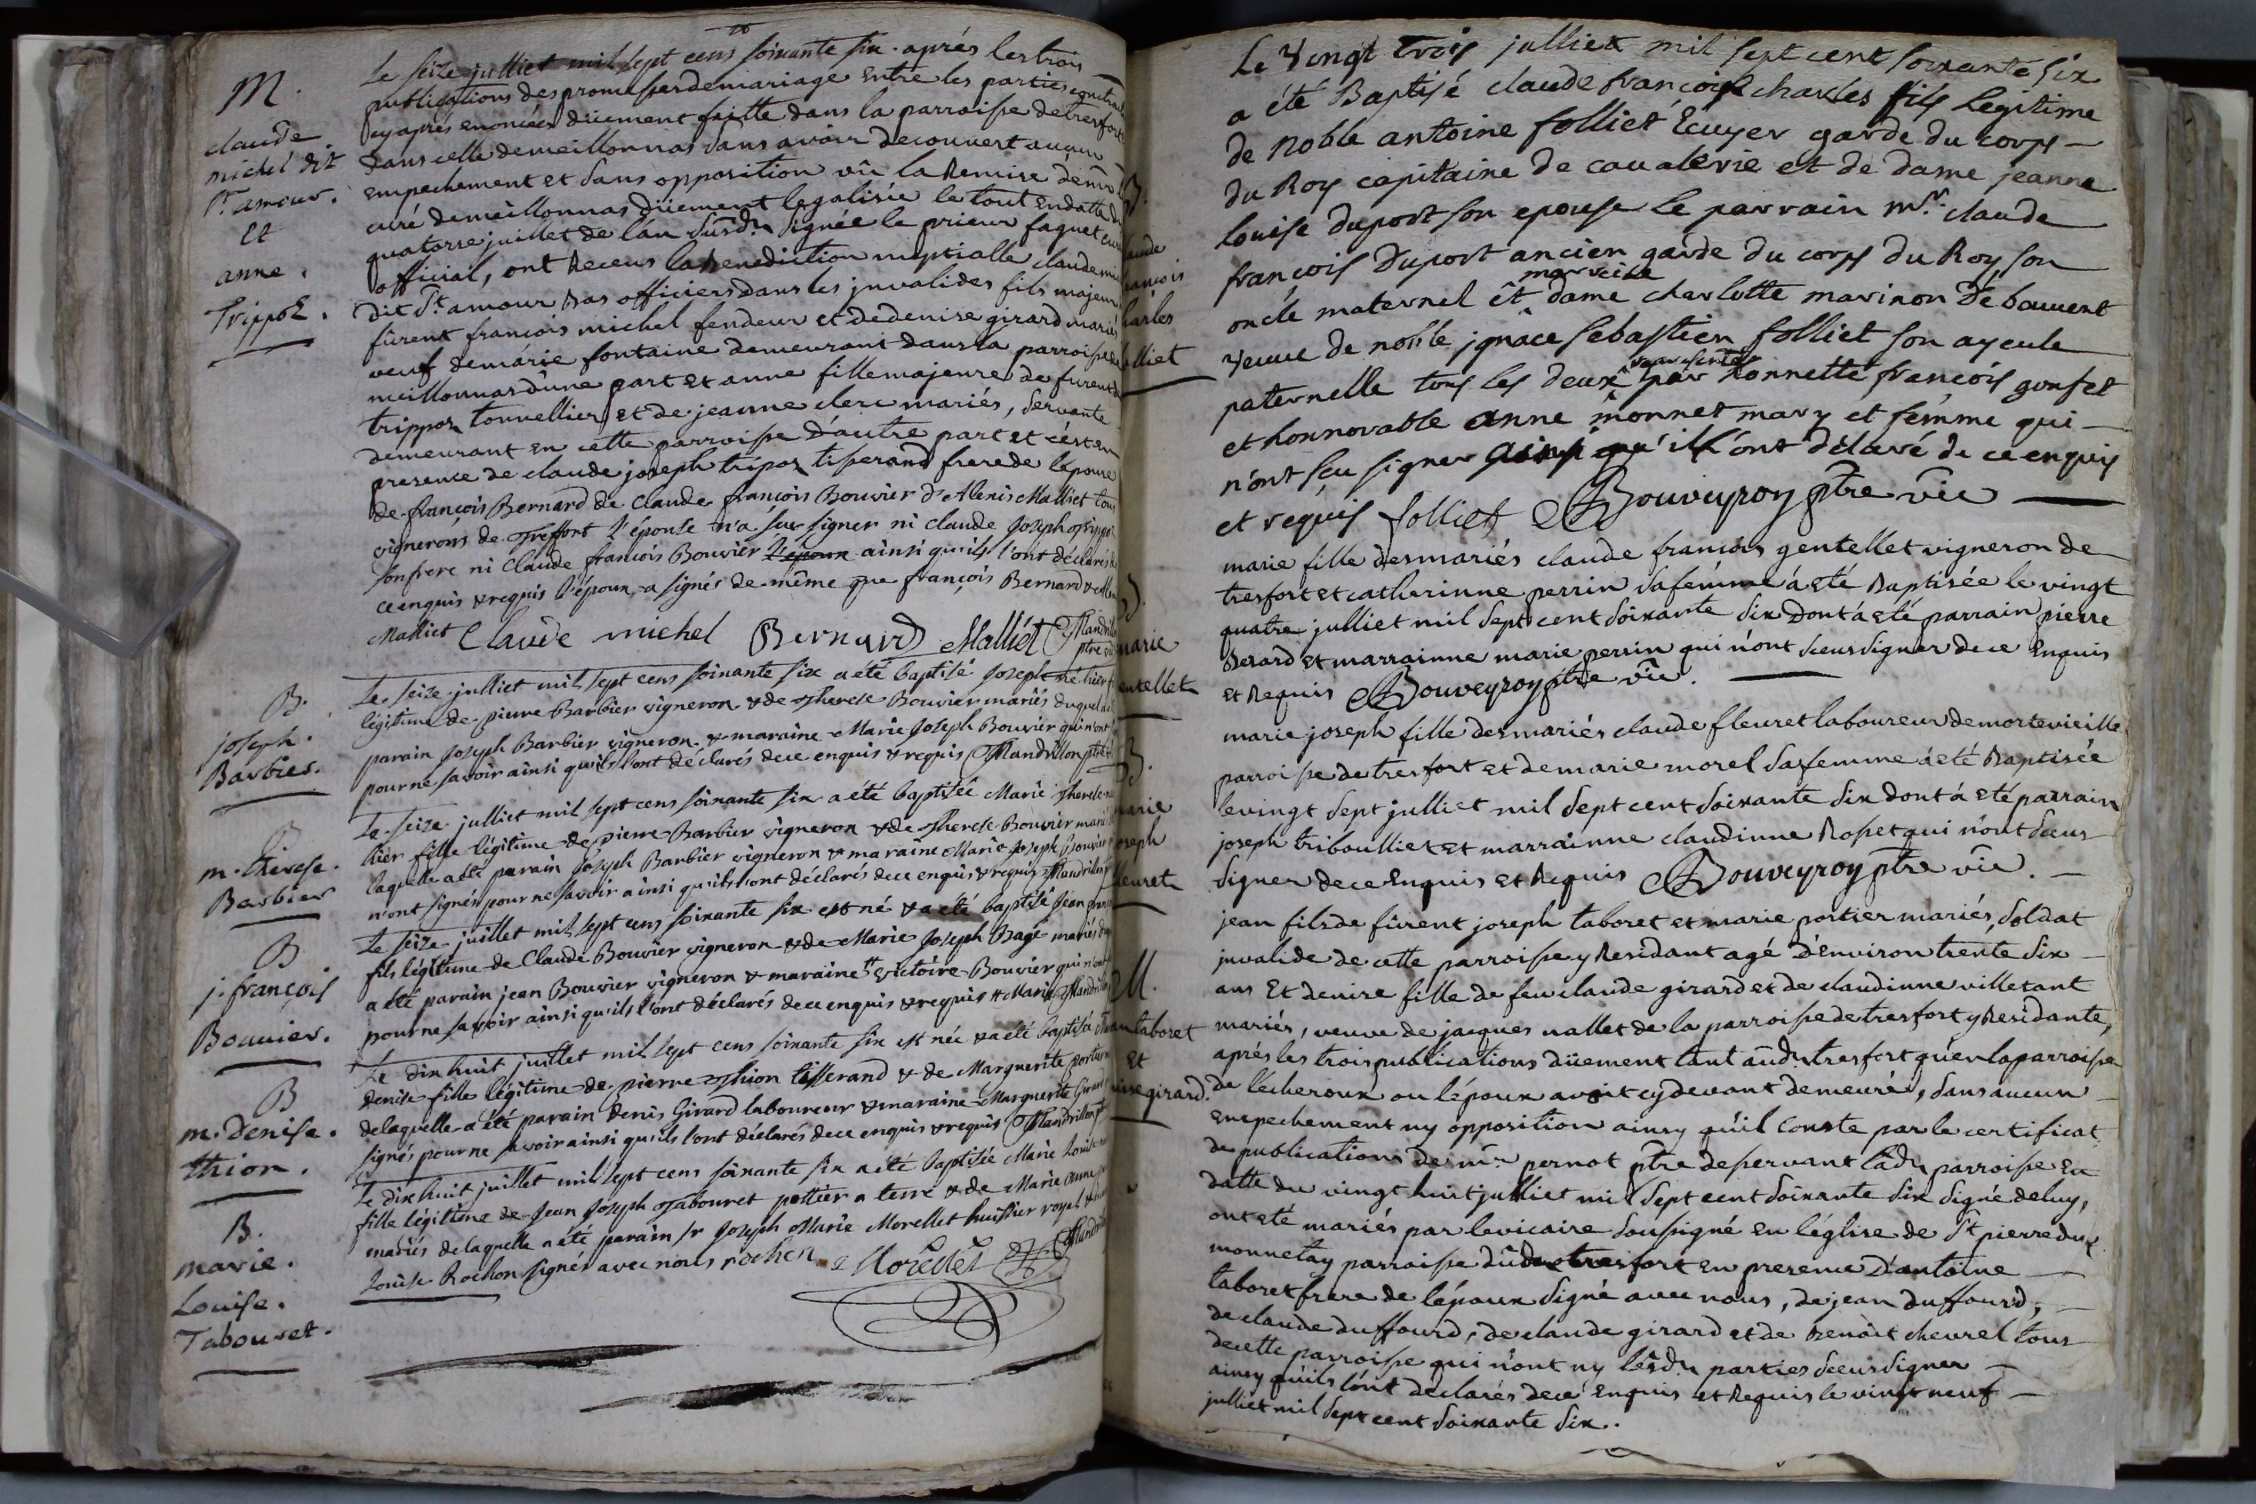 M.
claude
michel dit
St amour.
Et
anne.
Trippoz.
Le seize julliet mil sept cens soixante six. aprés les trois
publications des promesses de mariage entre les parties contract
cy aprés enoncées düement faitte dans la parroisse de tresfort
dans celle de meillonnas sans avoir decouvert aucun
empechement et sans opposition vû la Remise de mr
curé de meillonnas düement legalisée le tout en datte du
quatorze juillet de l'an susdt. signée le prieur faguet curé
official, ont Receus la benediction nuptialle claude mic
dit St. amour bas officiers dans les jnvalides fils majeur
fûrent françois michel fendeur et de denise girard mariés
veuf de marie fontaine demeurant dans la parroisse de
meillonnas d'une part et anne fille majeure de furent
trippoz tonnellier et de jeanne clerc mariés, servante
demeurant en cette parroisse d'autre part et c'est en
presence de claude joseph tripoz tisserand frere de l'épouse
de françois Bernard de Claude françois Bouvier d'Alexis Malliet tous
vignerons de Treffort l'épouse n'a sçu signer ni claude Joseph Trippo
son frere ni Claude françois Bouvier l'époux ainsi qu'ils l'ont déclarés de
ce enquis & requis l'époux a signés de même que françois Bernard & Alexis
Malliet Claude michel Bernard Malliét Mandrillon
ptre vic
B.
joseph.
Barbier.
Le seize julliet mil sept cens soixante six a été baptisé Joseph né hier f
légitime de pierre Barbier vigneron & de Therese Bouvier mariés duquel a
parain Joseph Barbier vigneron & maraine Marie Joseph Bouvier qui n'ont
pour ne savoir ainsi qu'ils l'ont déclarés de ce enquis & requis Mandrillon ptre
B
m. therese.
Barbier
Le seize julliet mil sept cens soixante six a été baptisée Marie Therese
hier fille légitime de pierre Barbier vigneron & de Therese Bouvier mari
laquelle a été parain Joseph Barbier vigneron & maraine Marie Joseph Bouvier
n'ont signés pour ne savoir ainsi qu'ils l'ont déclarés de ce enquis & requis Mandrillon
B
j. françois
Bouvier.
Le seize juillet mil sept cens soixante six est né & a été baptisé Jean fran
fils légitime de Claude Bouvier vigneron & de Marie Joseph Bagé mariés du
a été parain jean Bouvier vigneron & maraine victoire Bouvier qui n'ont
pour ne savoir ainsi qu'ils l'ont déclarés de ce enquis & requis Marie Mandrillon
B
m. Denise.
thion.
Le dix huit juillet mil sept cens soixante six est née & a été baptisée
Denise fille légitime de pierre Thion tisserand & de Marguerite portier
de laquelle a été parain Denis Girard laboureur & maraine Marguerite Girard
signés pour ne savoir ainsi qu'ils l'ont déclarés de ce enquis & requis Mandrillon
B.
marie.
Louise.
Tabouret.
Le dix huit juillet mil sept cens soixante six a été baptisée Marie Louise
fille légitime de Jean Joseph Tabouret potier a terre & de Marie anne
mariés de laquelle a été parain sr Joseph Marie Morellet huissier royal &
Louise Rochon signés avec nous rochon Morellet Mandril
B.
claude
françois
charles
folliet
Le Vingt trois julliet mil sept cent soixante six
a été Baptisé claude françois charles fils legitime
de Noble antoine folliet Ecuyer garde du corps
du Roy capitaine de cavalerie et de dame jeanne
louise duport son epouse le parrain mr. claude
françois Duport ancien garde du corps du Roy son
oncle maternel êt marreine dame charlotte marinon De bauvent
veuve de noble jgnâce sebastien folliet son ayeule
paternelle tous les deux representés par honnette françois gonfet
et honnorable anne monnet mary et femme qui
n'ont sçu signer ainsi qu'il l'ont déclaré de ce enquis
et requis folliet Bouveyroy ptre vic
B.
marie
gentellet
marie fille des mariés claude françois gentellet vigneron de
tresfort et catherinne perrin sa femme á eté Baptisée le vingt
quatre julliet mil sept cent soixante six dont á eté parrain pierre
Berard et marrainne marie perrin qui n'ont sceus signer de ce Enquis
et Requis Bouveyroy ptre vic.
B.
marie
joseph
fleuret
marie joseph fille des mariés claude fleuret laboureur de mortevieille
parroisse de tresfort et de marie morel sa femme á eté Baptisée
le vingt sept julliet mil sept cent soixante six dont á eté parrain
joseph triboulliet et marrainne claudinne Rosset qui n'ont sceus
signer de ce Enquis et Requis Bouveyroy ptre vic.
M.
jean taboret
et
denise girard.
jean fils de fûrent joseph taboret et marie portier mariés, soldat
jnvalide de cette parroisse y Residant agé d'environ trente six
ans Et denise fille de feu claude girard et de claudinne villetant
mariés, veuve de jacques nallet de la parroisse de tresfort y Residante,
aprés les trois publications düement tant audt. tresfort qu'en la parroisse
de lécheroux ou l'époux avoit cy devant demeuré, sans aucun
empechement ny opposition ainsy qu'il conste par le certificat
de publications de mr. pernot ptre desservant ladt. parroisse En
datte du vingt huit julliet mil sept cent soixante six signé de luy,
ont eté mariés par le vicaire soussigné en l'église de St pierre du
monnetay parroisse dudt tresfort en presence d'antoine
taboret frere de l'époux signé avec nous, de jean duffourd,
de claude duffourd, de claude girard et de Benoit chevrel tous
de cette parroisse qui n'ont ny lesdt. parties sceus signer
ainsy qu'ils l'ont declarés de ce Enquis et Requis le vingt neuf
julliet mil sept cent soixante six.